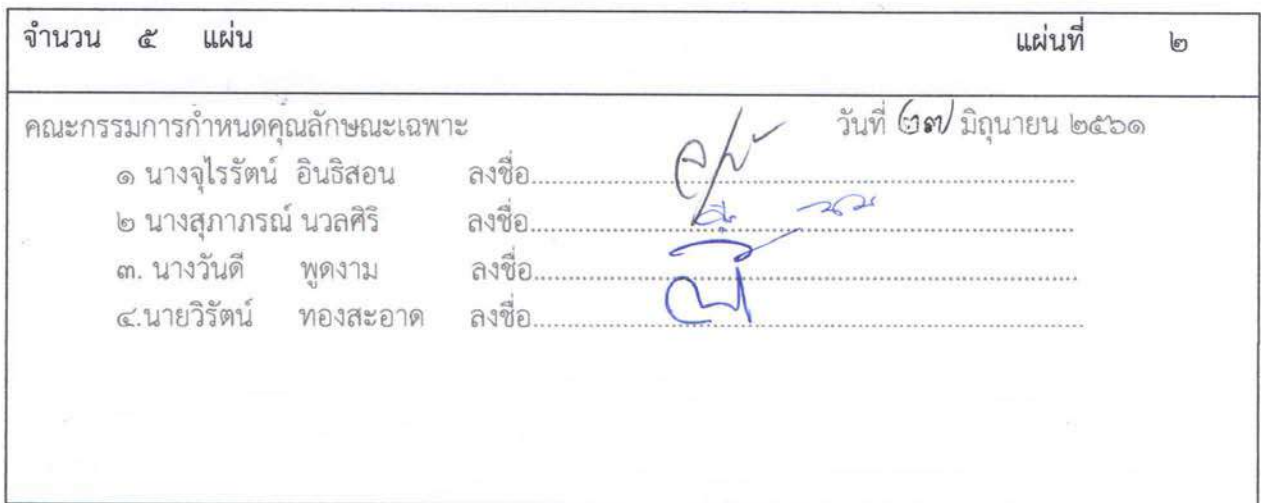 จำนวน ๕ แผ่น แผ่นที่ ๒
คณะกรรมการกำหนดคุณลักษณะเฉพาะ วันที่ ๒๗ มิถุนายน ๒๕๖๑
๑ นางจุไรรัตน์ อินธิสอน ลงชื่อ..........
๒ นางสุภาภรณ์ นวลศิริ ลงชื่อ..........
๓. นางวันดี พูดงาม ลงชื่อ..........
๔.นายวิรัตน์ ทองสะอาด ลงชื่อ..........